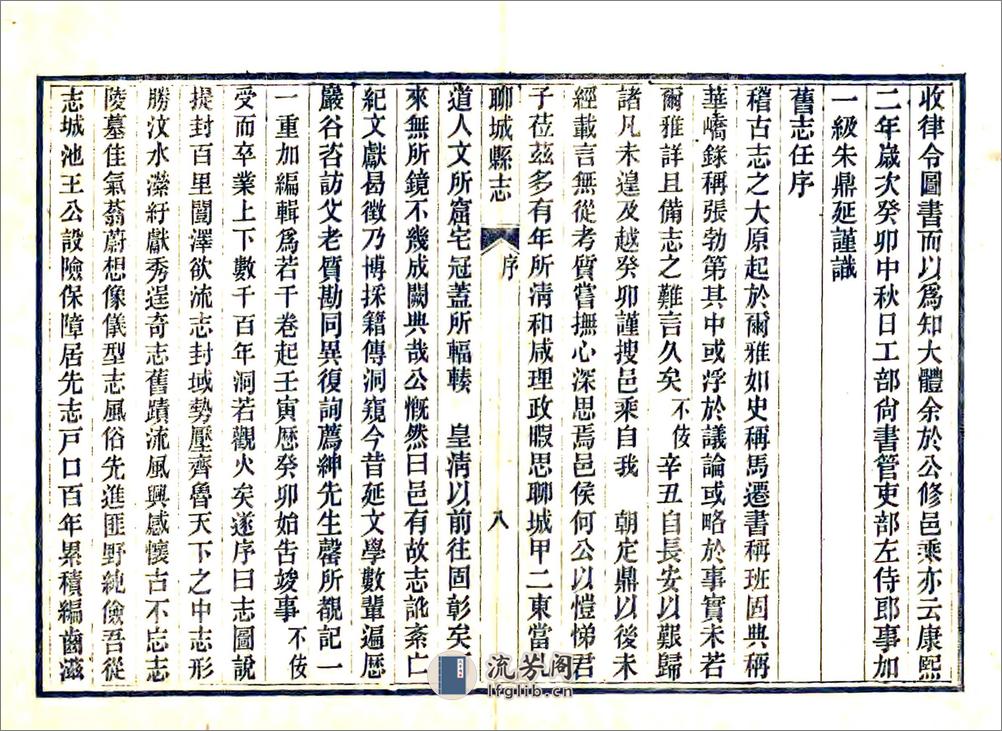 收律令圖書而以爲知大體余於公修邑乘亦云康熙
二年歲次癸卯中秋日工部尙書管吏部左侍郎事加
一級朱鼎延謹識
舊志任序
稽古志之大原起於爾雅如史稱馬遷書稱班固典稱
華嶠錄稱張勃第其中或浮於議論或略於事實未若
爾雅詳且備志之難言久矣不佞辛丑自長安以艱歸
諸凡未遑及越癸卯謹搜邑乘自我 朝定鼎以後未
經載言無從考質嘗撫心深思焉邑侯何公以愷悌君
子莅茲多有年所淸和咸理政暇思聊城甲二東當
聊城縣志 序 八
道人文所窟宅冠蓋所輻輳 皇淸以前往固彰矣
來無所鏡不幾成闕典哉公慨然曰邑有故志訛紊亡
紀文獻曷徵乃博採籍傳洞窺今昔延文學數輩遍歷
巖谷咨訪父老質勘同異復詢薦紳先生罄所覩記一
一重加編輯爲若干卷起壬寅歷癸卯始告竣事不佞
受而卒業上下數千百年洞若觀火矣遂序曰志圖說
提封百里闓澤欲流志封域勢壓齊魯天下之中志形
勝汶水瀠紆獻秀逞奇志舊蹟流風興感懷古不忘志
陵墓佳氣蓊蔚想像儀型志風俗先進匪野純儉吾從
志城池王公設險保障居先志戸口百年累積編齒滋
流芳阁
lfglib.cn